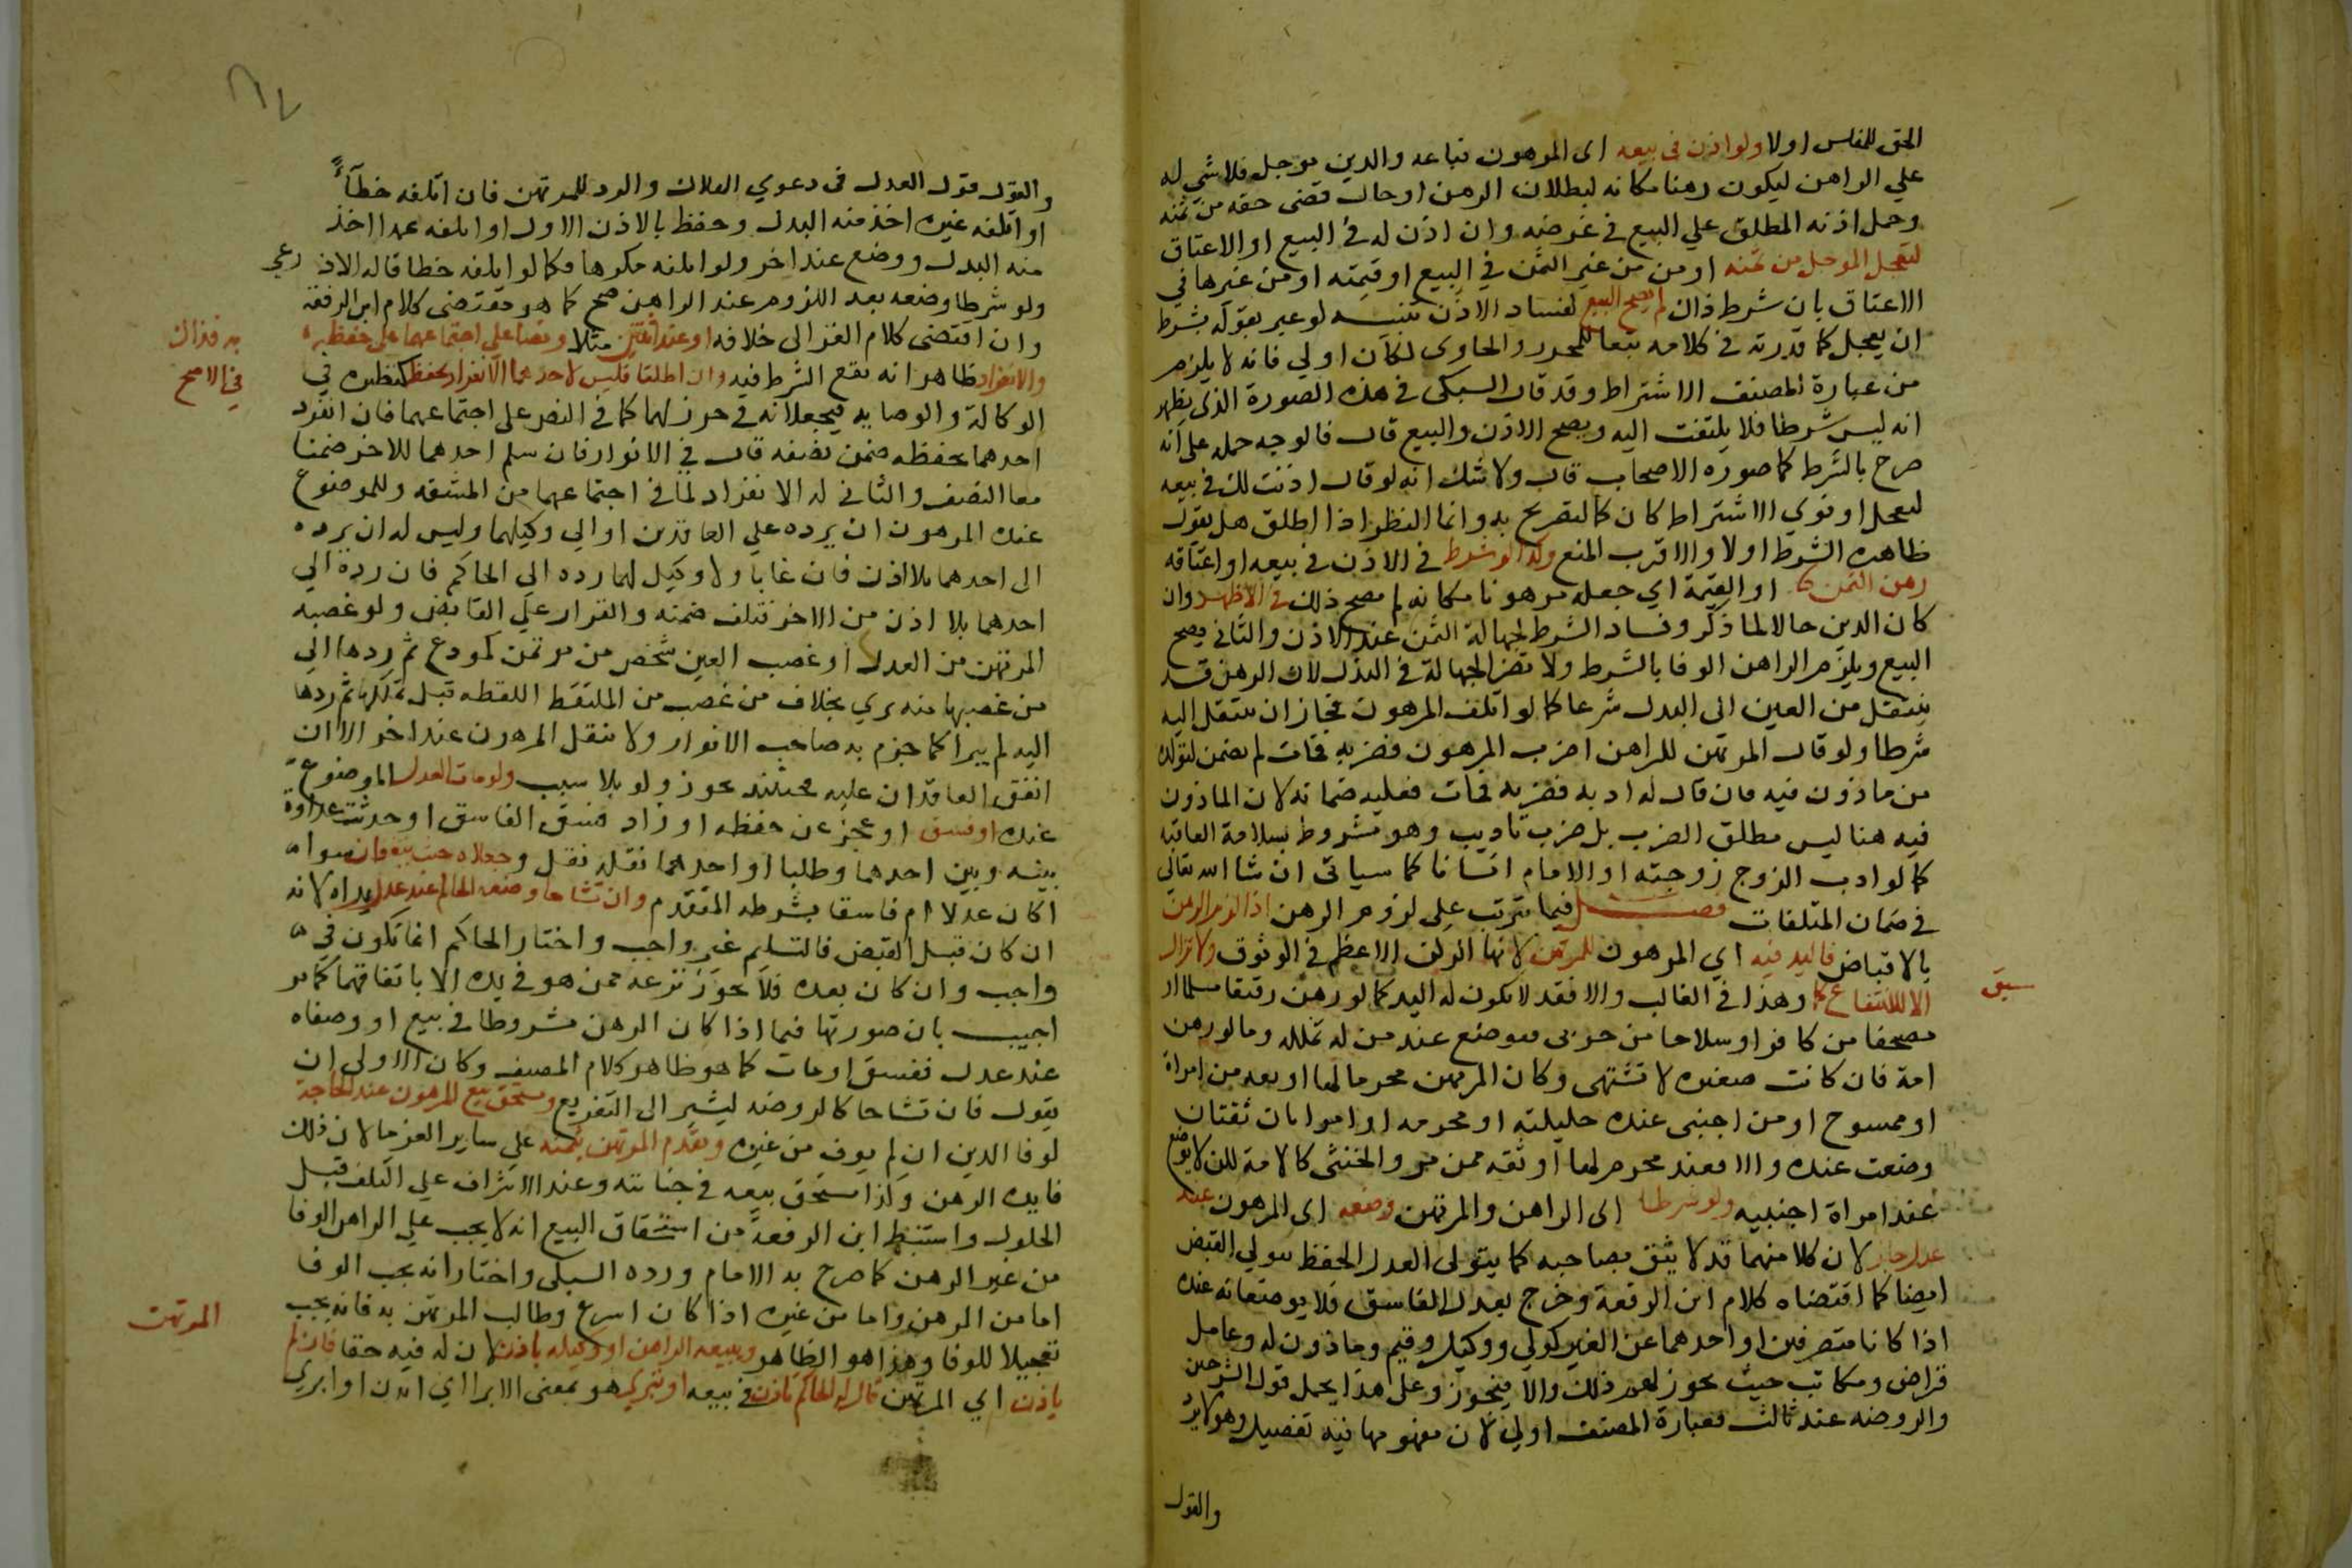 الحق للفلس اولا ولو اذن في بيعه اى المرهون فباعه والدين موجل فلا شي له
علي الراهن ليكون رهنا مكانه لبطلان الرهن او حال قضى حقه من ثمنه
وحمل اذنه المطلق علي البيع في غرضه وان اذن له في البيع او الاعتاق
ليعجل الموجل من ثمنه او من من غير الثمن في البيع او قيمته او من غيرها في
الاعتاق بان شرط ذان لم يصح البيع لفساد الاذن تنبيه لو عبر بقوله بشرط
ان يعجل كما قدرته في كلامه تبعا للمحرر والحاوى لكان اولي فانه لا يلزم
من عبارة المصنف الاشتراط وقد قال السبكى في هذه الصورة الذى يظهر
انه ليس شرطا فلا يلتفت اليه ويصح الاذن والبيع قال فالوجه حمله على انه
صرح بالشرط كما صوره الاصحاب قال ولا شك انه لو قال اذنت لك في بيعه
لتعجل او نوي الاشتراط كان كالتصريح به وانما النظر اذا اطلق هل يقول
ظاهره الشرط اولا والاقرب المنع وكذا لو شرط في الاذن في بيعه او اعتاقه
رهن الثمن او القيمة اي جعله مرهونا مكانه لم يصح ذلك في الاظهر وان
كان الدين حالا لما ذكر وفساد الشرط لجهالة الثمن عند الاذن والثانى يصح
البيع ويلزم الراهن الوفا بالشرط ولا تضر الجهالة في البدل لان الرهن قد
ينتقل من العين الى البدل شرعا كما لو اتلف المرهون فجاز ان ينتقل اليه
شرطا ولو قال المرتهن للراهن اضرب المرهون فضربه فمات لم يضمن لتولده
من ماذون فيه فان قال له ادبه فضربه فمات فعليه ضمانه لان الماذون
فيه هنا ليس مطلق الضرب بل ضرب تاديب وهو مشروط بسلامة العاقبه
كما لو ادب الزوج زوجته او الامام انسانا كما سياتى ان شا الله تعالى
في ضمان المتلفات فصل فيما يترتب على لزوم الرهن اذا لزم الرهن
بالاقباض فاليد فيه اي المرهون للمرتهن لانها الركن الاعظم في الوثوق ولا تزال
الا للانتفاع كما وهذا في الغالب والا فقد لا تكون له اليد كما لو رهن رقيقا مسلما او
سبق
مصحفا من كافر او سلاحا من حربى فيوضع عند من له تملكه وما لو رهن
امة فان كانت صغيره لا تشتهى وكان المرتهن محرما لها او بعد من امراة
او ممسوح او من اجنبى عنده حليلته او محرمه او امراتان ثقتان
وضعت عنده والا فعند محرم لها او ثقه ممن مر والخنثى كالامة لكن لا يوضع
عند امراة اجنبيه ولو شرطا اى الراهن والمرتهن وضعه اى المرهون عند
عدل جاز لان كلا منهما قد لا يثق بصاحبه كما يتولى العدل الحفظ يتولي القبض
ايضا كما اقتضاه كلام ابن الرفعة وخرج بعدل الفاسق فلا يوضعانه عنده
اذا كانا متصرفين او احدهما عن الغير كولي ووكيل وقيم وماذون له وعامل
قراض ومكاتب حيث يجوز لهم ذلك والا فيجوز وعلى هذا يحمل قول الشرحين
والروضه عند ثالث فعبارة المصنف اولي لان مفهومها فيه تفصيل وهو لا يرد
والقول
والقول قول العدل في دعوي التلاف والرد للمرتهن فان اتلفه خطأ
او اتلفه غيره اخذ منه البدل وحفظ بالاذن الاول او اتلفه عمدا اخذ
منه البدل ووضع عند اخر ولو اتلفه مكرها فكما لو اتلفه خطا قاله الاذرعي
ولو شرطا وضعه بعد اللزوم عند الراهن صح كما هو مقتضى كلام ابن الرفعة
وان اقتضى كلام الغزالى خلافه او عند اثنين مثلا ونصا على اجتماعهما على حفظه
به فذاك
والانفراد ظاهر انه يتبع الشرط فيه وان اطلقا فليس لاحدهما الانفراد بحفظه كنظيره في
في الاصح
الوكالة والوصايه فيجعلانه في حرز لهما كما في النص على اجتماعهما فان انفرد
احدهما بحفظه ضمن نصفه قال في الانوار فان سلم احدهما للاخر ضمنا
معا النصف والثانى له الانفراد لما في اجتماعهما من المشقه وللموضوع
عنده المرهون ان يرده علي العاقدين او الي وكيلهما وليس له ان يرده
الى احدهما بلا اذن فان غابا ولا وكيل لهما رده الي الحاكم فان رده الي
احدهما بلا اذن من الاخر فتلف ضمنه والقرار علي القابض ولو غصبه
المرتهن من العدل او غصب العين شخص من مؤتمن كمودع ثم ردها الي
من غصبها منه بري بخلاف من غصب من الملتقط اللقطه قبل تملكها ثم ردها
اليه لم يبرا كما جزم به صاحب الانوار ولا ينقل المرهون عند اخر الا ان
اتفق العاقدان عليه فحينئذ يجوز ولو بلا سبب ولو مات العدل الموضوع
عنده او فسق او عجز عن حفظه او زاد فسق الفاسق او حدثت عداوة
بينه وبين احدهما وطلبا او احدهما نقله نقل وجعلاه حيث يتفقان سوا
اكان عدلا ام فاسقا بشرطه المتقدم وان تشاحا وضعه الحاكم عند عدل يراه لانه
ان كان قبل القبض فالتسليم غير واجب واختار الحاكم انما تكون في
واجب وان كان بعده فلا يجوز نزعه ممن هو في يده الا باتفاقهما كما مر
اجيب بان صورتها فيما اذا كان الرهن مشروطا في بيع او وضعاه
عند عدل ففسق او مات كما هو ظاهر كلام المصنف وكان الاولى ان
يقول فان تشاحا كالروضه ليشير الى التفريع ويستحق بيع المرهون عند الحاجة
لوفا الدين ان لم يوف من غيره ويقدم المرتهن بثمنه علي ساير الغرما لان ذلك
فايده الرهن وكذا يستحق بيعه في جنايته وعند الاشراف علي التلف قبل
الحلول واستنبط ابن الرفعة من استحقاق البيع انه لا يجب علي الراهن الوفا
من غير الرهن كما صرح به الامام ورده السبكى واختار انه يجب الوفا
اما من الرهن واما من غيره اذا كان اسرع وطالب المرتهن به فانه يجب
المرتهن
تعجيلا للوفا وهذا هو الظاهر ويبيعه الراهن او وكيله باذن لان له فيه حقا فان لم
ياذن اي المرتهن قال له الحاكم تاذن في بيعه او تبري هو بمعنى الابرا اي ايذن او ابري